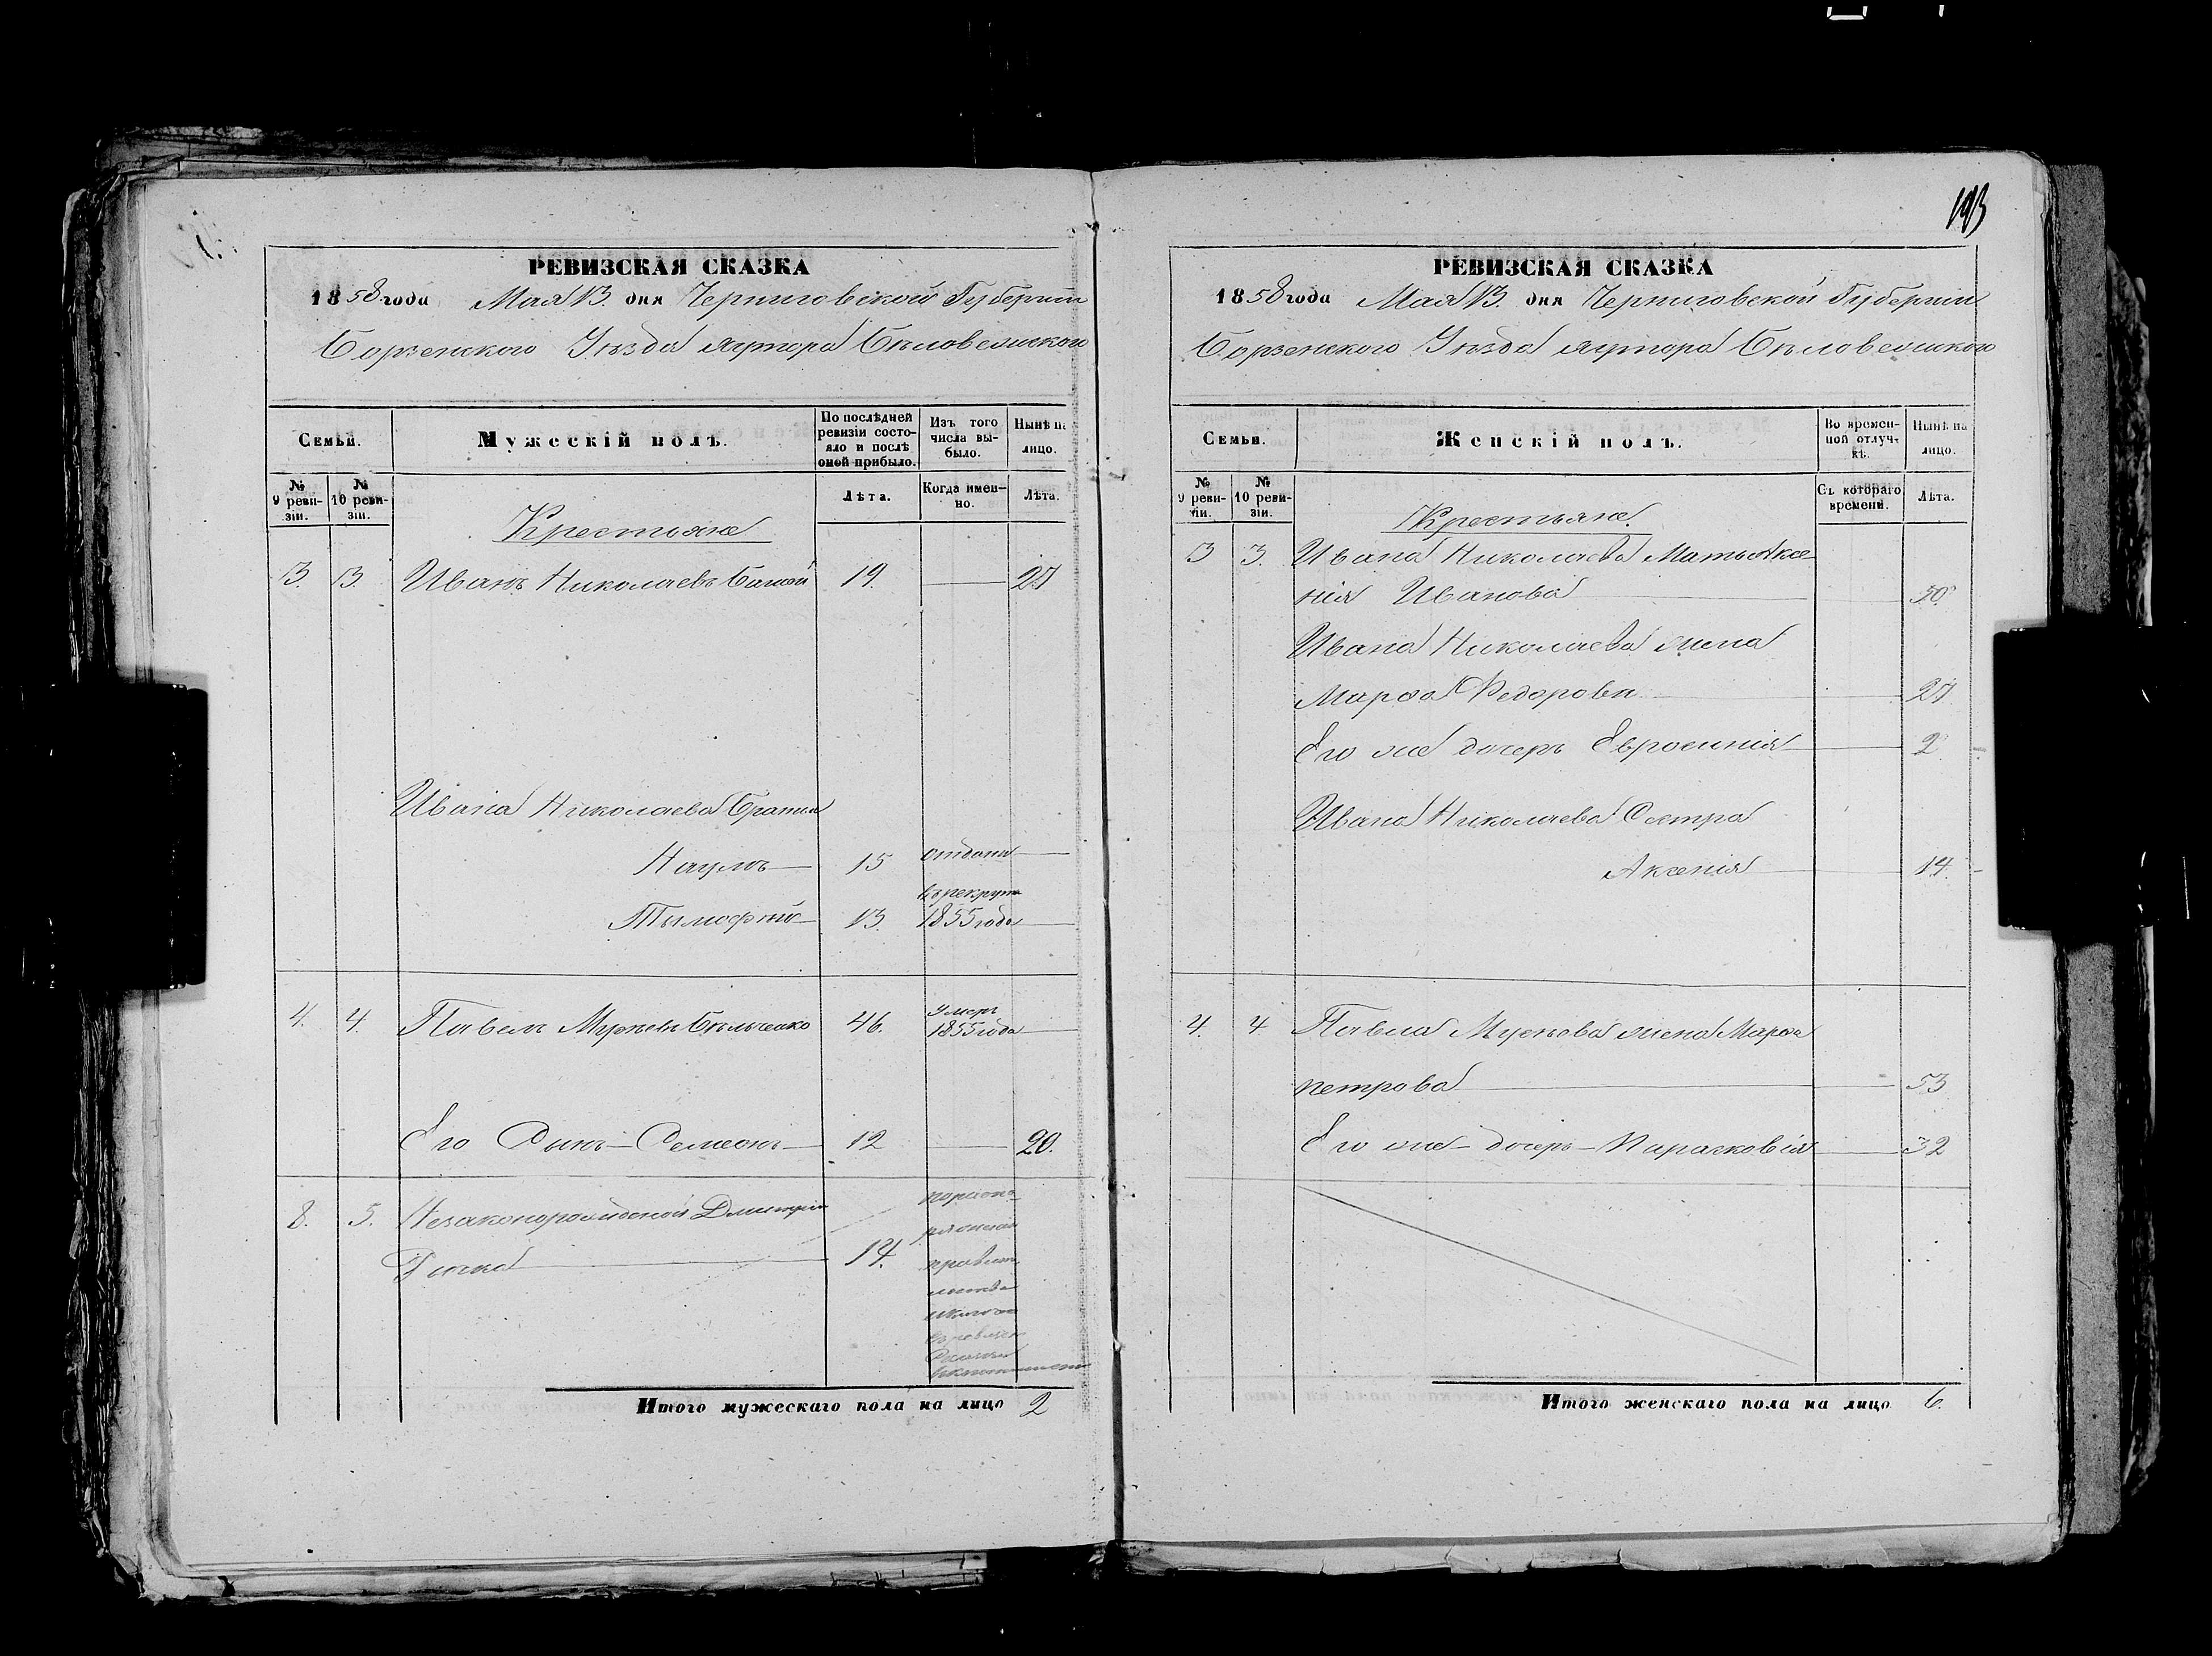 193
РЕВИЗСКАЯ СКАЗКА
1858 года Мая 13. дня Черниговской Губернии
Борзенского Уезда хутора Беловежского
Семьи.
Мужескій полъ.
По послѣдней ревизіи состояло и послѣ оной прибыло.
Изъ того числа выбыло.
Нынѣ на лицо.
№ 9 ревизіи.
№ 10 ревизіи.
Лѣта.
Когда именно.
Лѣта.
Крестьяне
3. 3. Иванъ Николаевъ 19. 27
Ивана Николаева братья
Наумъ 15 отданъ
въ рекруты
Тымофей 13. 1855 года
4. 4. Павелъ 46. Умеръ
1855 года
Его Сынъ Семеонъ 12 20.
8. 5. Незаконорожденой Дмитрій
14.
Итого мужескаго пола на лицо 2
РЕВИЗСКАЯ СКАЗКА
1858 года Мая 13. дня Черниговской Губернии
Борзенского Уезда хутора Беловежского
Семьи.
Женскій полъ.
Во временной отлучкѣ.
Нынѣ на лицо.
№ 9 ревизіи.
№ 10 ревизіи.
Съ котораго времени.
Лѣта.
Крестьяне.
3 3. Ивана Николаева Мать Аксе-
нія Иванова 50
Ивана Николаева жена
Марфа Федорова 27
Его же дочерь Евросинія 2
Ивана Николаева Сестра
Аксенія 14.
4. 4 Павла жена Марфа
петрова 53
Его же дочерь Парасковія 32
Итого женскаго пола на лицо 6.